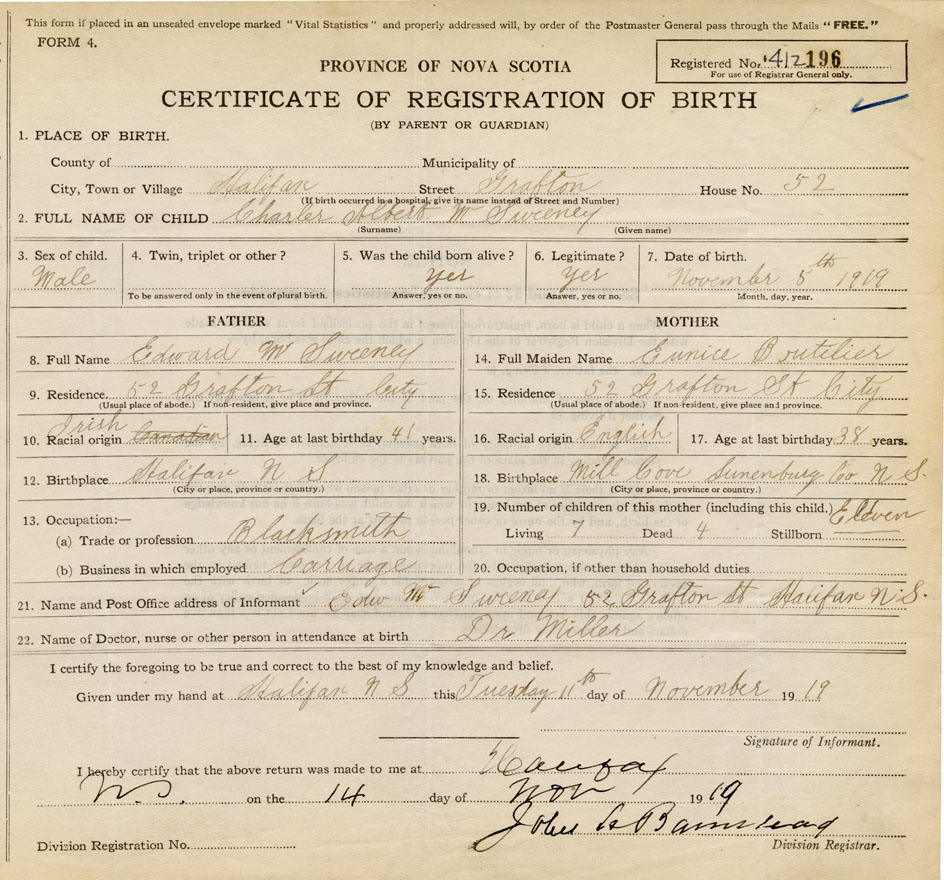 This form if placed in an unsealed envelope marked "Vital Statistics" and properly addressed will, by order of the Postmaster General pass through the Mails "FREE."
FORM 4.
Registered No. 412196
For use of Registrar General only.
PROVINCE OF NOVA SCOTIA
CERTIFICATE OF REGISTRATION OF BIRTH
(BY PARENT OR GUARDIAN)
1. PLACE OF BIRTH.
County of Municipality of
City, Town or Village Halifax Street Grafton House No. 52
(If birth occurred in a hospital, give its name instead of Street and Number)
2. FULL NAME OF CHILD Charles Albert McSweeney
(Surname) (Given name)
3. Sex of child. 4. Twin, triplet or other? 5. Was the child born alive? 6. Legitimate? 7. Date of birth.
Male yes yes November 5th 1919
To be answered only in the event of plural birth. Answer, yes or no. Answer, yes or no. Month, day, year.
FATHER MOTHER
8. Full Name Edward McSweeney 14. Full Maiden Name Eunice Boutilier
9. Residence. 52 Grafton St City 15. Residence 52 Grafton St City
(Usual place of abode.) If non-resident, give place and province. (Usual place of abode.) If non-resident, give place and province.
Irish
10. Racial origin Canadian 11. Age at last birthday 41 years. 16. Racial origin English 17. Age at last birthday 38 years.
12. Birthplace Halifax N S 18. Birthplace Mill Cove Lunenburg Co N.S.
(City or place, province or country.) (City or place, province or country.)
13. Occupation:— 19. Number of children of this mother (including this child.) Eleven
(a) Trade or profession Blacksmith Living 7 Dead 4 Stillborn
(b) Business in which employed Carriage 20. Occupation, if other than household duties
21. Name and Post Office address of Informant Edw McSweeney 52 Grafton St Halifax N.S.
22. Name of Doctor, nurse or other person in attendance at birth Dr Miller
I certify the foregoing to be true and correct to the best of my knowledge and belief.
Given under my hand at Halifax N S this Tuesday 11th day of November 1919
Signature of Informant.
I hereby certify that the above return was made to me at Halifax
N.S. on the 14 day of Nov 1919
John A Barnstead
Division Registration No. Division Registrar.